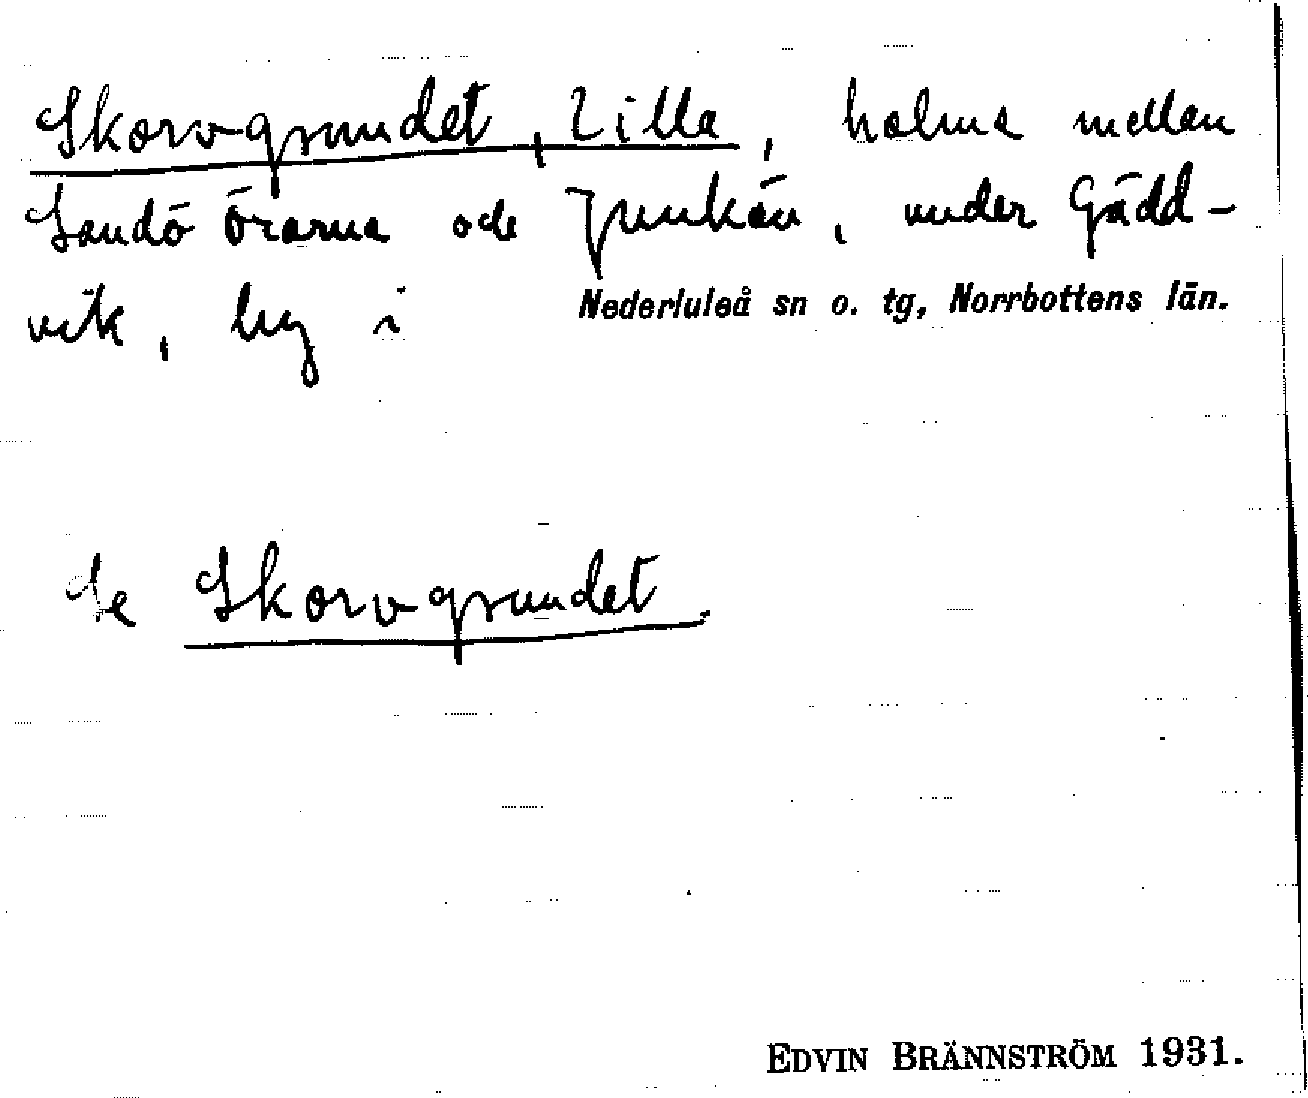 Skorvgrundet, Lilla, holme mellan
Sandö örarna och Junkön, under Gädd-
vik, by i Nederluleå sn o. tg, Norrbottens län.
Se Skorvgrundet.
EDVIN BRÄNNSTRÖM 1931.